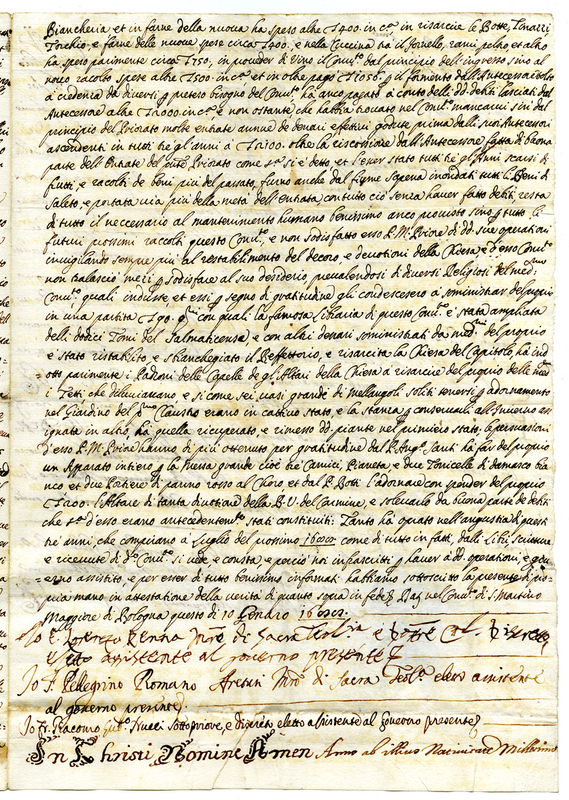 Biancheria, et in farne della nuova ha speso altre £400. in cᵃ. in risarcire le Botte, Tinazzi
Torchio, e farne delle nuove spese circa £400. e nella Cuccina trà il fornello, rami peltro et altro
hà speso parimente circa £750, in proveder di Vino il Conuᵗᵒ dal principio dell'ingresso sino al
novo racolto spese altre £500. in cᵃ. et in oltre pagò £1056. p il formento dell'Antecessore tolto
à credenza da diversi p preteso bisogno del Conuᵗᵒ ha anco pagato à conto delli dd. debiti lasciati dal
Antecessore altre £2000. in cᵃ. e non ostante che habbia trovato nel Conuᵗᵒ mancarvi sin dal
principio del Priorato molte entrate annue de denari effettivi godute prima dalli suoi Antecessori
ascendenti in tutti trè gli anni à £2100. oltre la riscossione dall'Antecessore fatta di buona
parte dell'Entrate del suo Priorato come sᵃ. si è detto, et l'esser stato tutti trè gli Anni scarsi di
frutti, e racolti de beni più del passato, furno anche dal fiume Savena inondati tutti li Beni di
Saleto, e portata via più della metà dell'entrata, contuttociò senza haver fatto debiti, resta
di tutto il neccessario al mantenimento humano benissimo anco proveduto sino p tutto li
futuri prossimi racolti questo Conuᵗᵒ, e non sodisfatto esso P. Mʳᵒ Priore di dd. sue operationi
invigilando sempre più al restabilimento del decoro, e devotioni della Chiesa, e d'esso Conuᵗᵒ
non tralasciò mezi p sodisfare al suo desiderio, prevalendosi di diversi Religiosi del medᵐᵒ
Conuᵗᵒ quali indusse, et essi p segno di gratitudine gli condescesero à somministrar del proprio
in una partita £90. con quali la famosa Libraria di questo Conuᵗᵒ è stata ampliata
delli dodici Tomi del Salmaticense, e con altri denari somministrati da medᵐⁱ del proprio
è stato ristabilito e stabilito il Refettorio, e risarcita la Chiesa del Capitolo, hà ind
otto parimente i Padroni delle Capelle de gl'Altari della Chiesa à risarcire del proprio delle medᵐᵉ
i Tetti che diluviavano, e si come sei vasi grande di Melangoli soliti tenersi p adornamento
nel Giardino del pᵐᵒ Claustro erano in cattivo stato, e la stanza p conservarli all'Inverno ass
ignata in altro, ha quella ricuperato, e rimesso dd. piante nel primiero stato, le persuasioni
d'esso P. M. Priore hanno di più ottenuto per gratitudine dal P. Angᵒ. Santi hà far del proprio
un Aparato intiero p la Messa grande cioè trè Camici, Pianeta, e due Tonicelle di damasco bia
nco et due Portiere di panno rosso al Choro et dal P. Boti l'adornare con spender del proprio
£200. l'Altare di tanta divotione della B. V. del Carmine, e solvearlo da buona parte de debiti
che sᵃ. d'esso erano antecedentemᵗᵉ. stati constituiti: Tanto hà oprato nell'angustia di questi
trè anni, che compiranno à Luglio del prossimo 1692 come di tutto in fatti, dalli Libri, Scritture
e ricevute di dᵗᵒ Conuᵗᵒ si vede, e consta, e perciò noi infrascritti p haver à dd. operationi, e gov-
erno assistito, e per esser di tutto benissimo informati habbiamo sottoscritto la presente di pro-
pria mano in attestatione della verità di quanto sopra in fede Dat. nel Conuᵗᵒ di S. Martino
Maggiore di Bologna questo dì 10 Genaro 1692
Io F. Lorenzo Penna Mrõ di Sacra Teolᵍⁱᵃ e
eletto assistente al governo presente
Io F. Pellegrino Romano Aretini Mrõ di Sacra Teolᵃ eletto assistente
al governo presente
Io Fr. Giacomo Nucci Sottopriore, e discreto eletto assistente al governo presente
In Christi Nomine Amen Anno ab illius Nativitate Millesimo